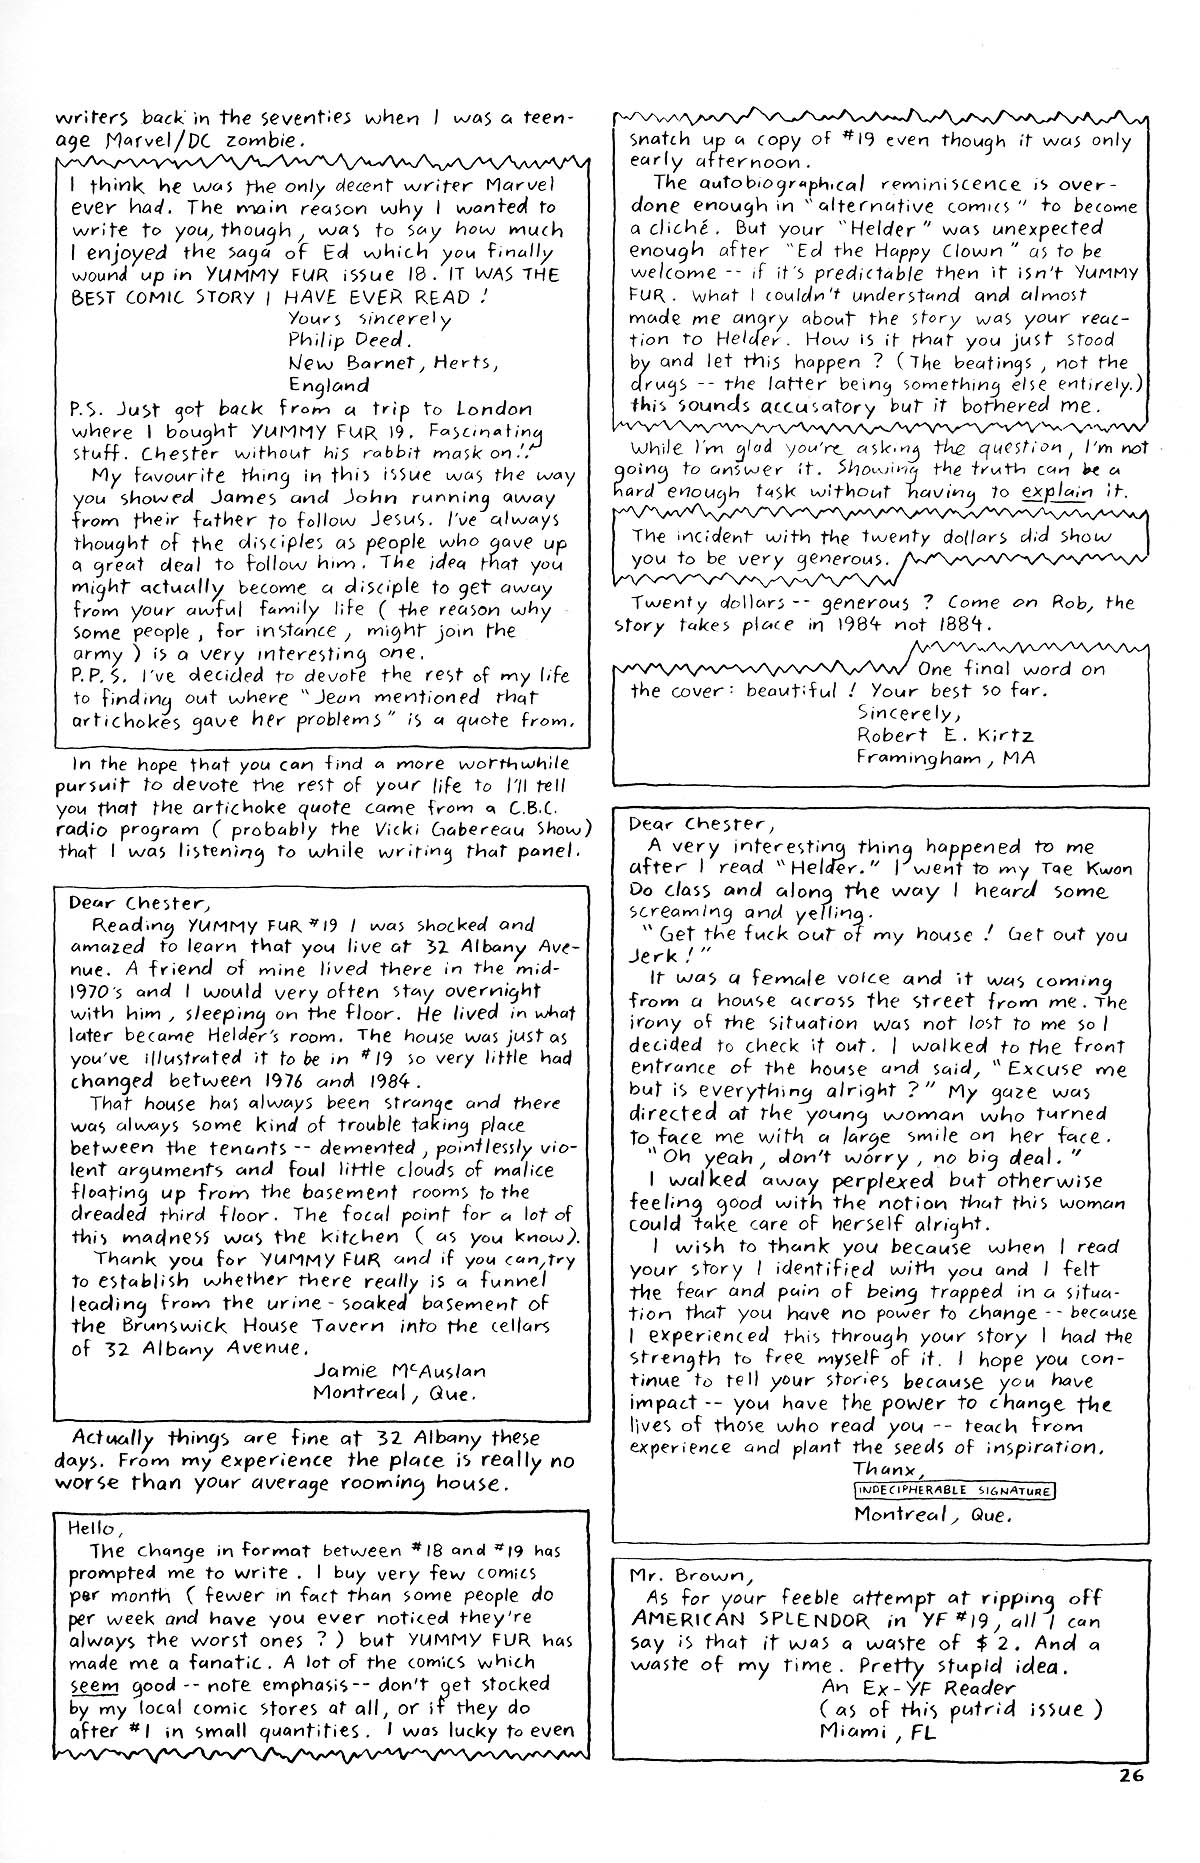 writers back in the seventies when I was a teen-
age Marvel/DC zombie.
I think he was the only decent writer Marvel
ever had. The main reason why I wanted to
write to you, though, was to say how much
I enjoyed the saga of Ed which you finally
wound up in YUMMY FUR issue 18. IT WAS THE
BEST COMIC STORY I HAVE EVER READ!
Yours sincerely
Philip Deed.
New Barnet, Herts,
England
P.S. Just got back from a trip to London
where I bought YUMMY FUR 19. Fascinating
stuff. Chester without his rabbit mask on!!
My favourite thing in this issue was the way
you showed James and John running away
from their father to follow Jesus. I've always
thought of the disciples as people who gave up
a great deal to follow him. The idea that you
might actually become a disciple to get away
from your awful family life (the reason why
some people, for instance, might join the
army) is a very interesting one.
P.P.S. I've decided to devote the rest of my life
to finding out where "Jean mentioned that
artichokes gave her problems" is a quote from.
In the hope that you can find a more worthwhile
pursuit to devote the rest of your life to I'll tell
you that the artichoke quote came from a C.B.C.
radio program (probably the Vicki Gabereau Show)
that I was listening to while writing that panel.
Dear Chester,
Reading YUMMY FUR #19 I was shocked and
amazed to learn that you live at 32 Albany Ave-
nue. A friend of mine lived there in the mid-
1970's and I would very often stay overnight
with him, sleeping on the floor. He lived in what
later became Helder's room. The house was just as
you've illustrated it to be in #19 so very little had
changed between 1976 and 1984.
That house has always been strange and there
was always some kind of trouble taking place
between the tenants -- demented, pointlessly vio-
lent arguments and foul little clouds of malice
floating up from the basement rooms to the
dreaded third floor. The focal point for a lot of
this madness was the kitchen (as you know).
Thank you for YUMMY FUR and if you can, try
to establish whether there really is a funnel
leading from the urine-soaked basement of
the Brunswick House Tavern into the cellars
of 32 Albany Avenue.
Jamie McAuslan
Montreal, Que.
Actually things are fine at 32 Albany these
days. From my experience the place is really no
worse than your average rooming house.
Hello,
The change in format between #18 and #19 has
prompted me to write. I buy very few comics
per month (fewer in fact than some people do
per week and have you ever noticed they're
always the worst ones?) but YUMMY FUR has
made me a fanatic. A lot of the comics which
seem good -- note emphasis -- don't get stocked
by my local comic stores at all, or if they do
after #1 in small quantities. I was lucky to even
snatch up a copy of #19 even though it was only
early afternoon.
The autobiographical reminiscence is over-
done enough in "alternative comics" to become
a cliché. But your "Helder" was unexpected
enough after "Ed the Happy Clown" as to be
welcome -- if it's predictable then it isn't YUMMY
FUR. What I couldn't understand and almost
made me angry about the story was your reac-
tion to Helder. How is it that you just stood
by and let this happen? (The beatings, not the
drugs -- the latter being something else entirely.)
this sounds accusatory but it bothered me.
While I'm glad you're asking the question, I'm not
going to answer it. Showing the truth can be a
hard enough task without having to explain it.
The incident with the twenty dollars did show
you to be very generous.
Twenty dollars -- generous? Come on Rob, the
story takes place in 1984 not 1884.
One final word on
the cover: beautiful! Your best so far.
Sincerely,
Robert E. Kirtz
Framingham, MA
Dear Chester,
A very interesting thing happened to me
after I read "Helder." I went to my Tae Kwon
Do class and along the way I heard some
screaming and yelling.
"Get the fuck out of my house! Get out you
Jerk!"
It was a female voice and it was coming
from a house across the street from me. The
irony of the situation was not lost to me so I
decided to check it out. I walked to the front
entrance of the house and said, "Excuse me
but is everything alright?" My gaze was
directed at the young woman who turned
to face me with a large smile on her face.
"Oh yeah, don't worry, no big deal."
I walked away perplexed but otherwise
feeling good with the notion that this woman
could take care of herself alright.
I wish to thank you because when I read
your story I identified with you and I felt
the fear and pain of being trapped in a situa-
tion that you have no power to change -- because
I experienced this through your story I had the
strength to free myself of it. I hope you con-
tinue to tell your stories because you have
impact -- you have the power to change the
lives of those who read you -- teach from
experience and plant the seeds of inspiration.
Thanx,
INDECIPHERABLE SIGNATURE
Montreal, Que.
Mr. Brown,
As for your feeble attempt at ripping off
AMERICAN SPLENDOR in YF #19, all I can
say is that it was a waste of $2. And a
waste of my time. Pretty stupid idea.
An Ex-YF Reader
(as of this putrid issue)
Miami, FL
26